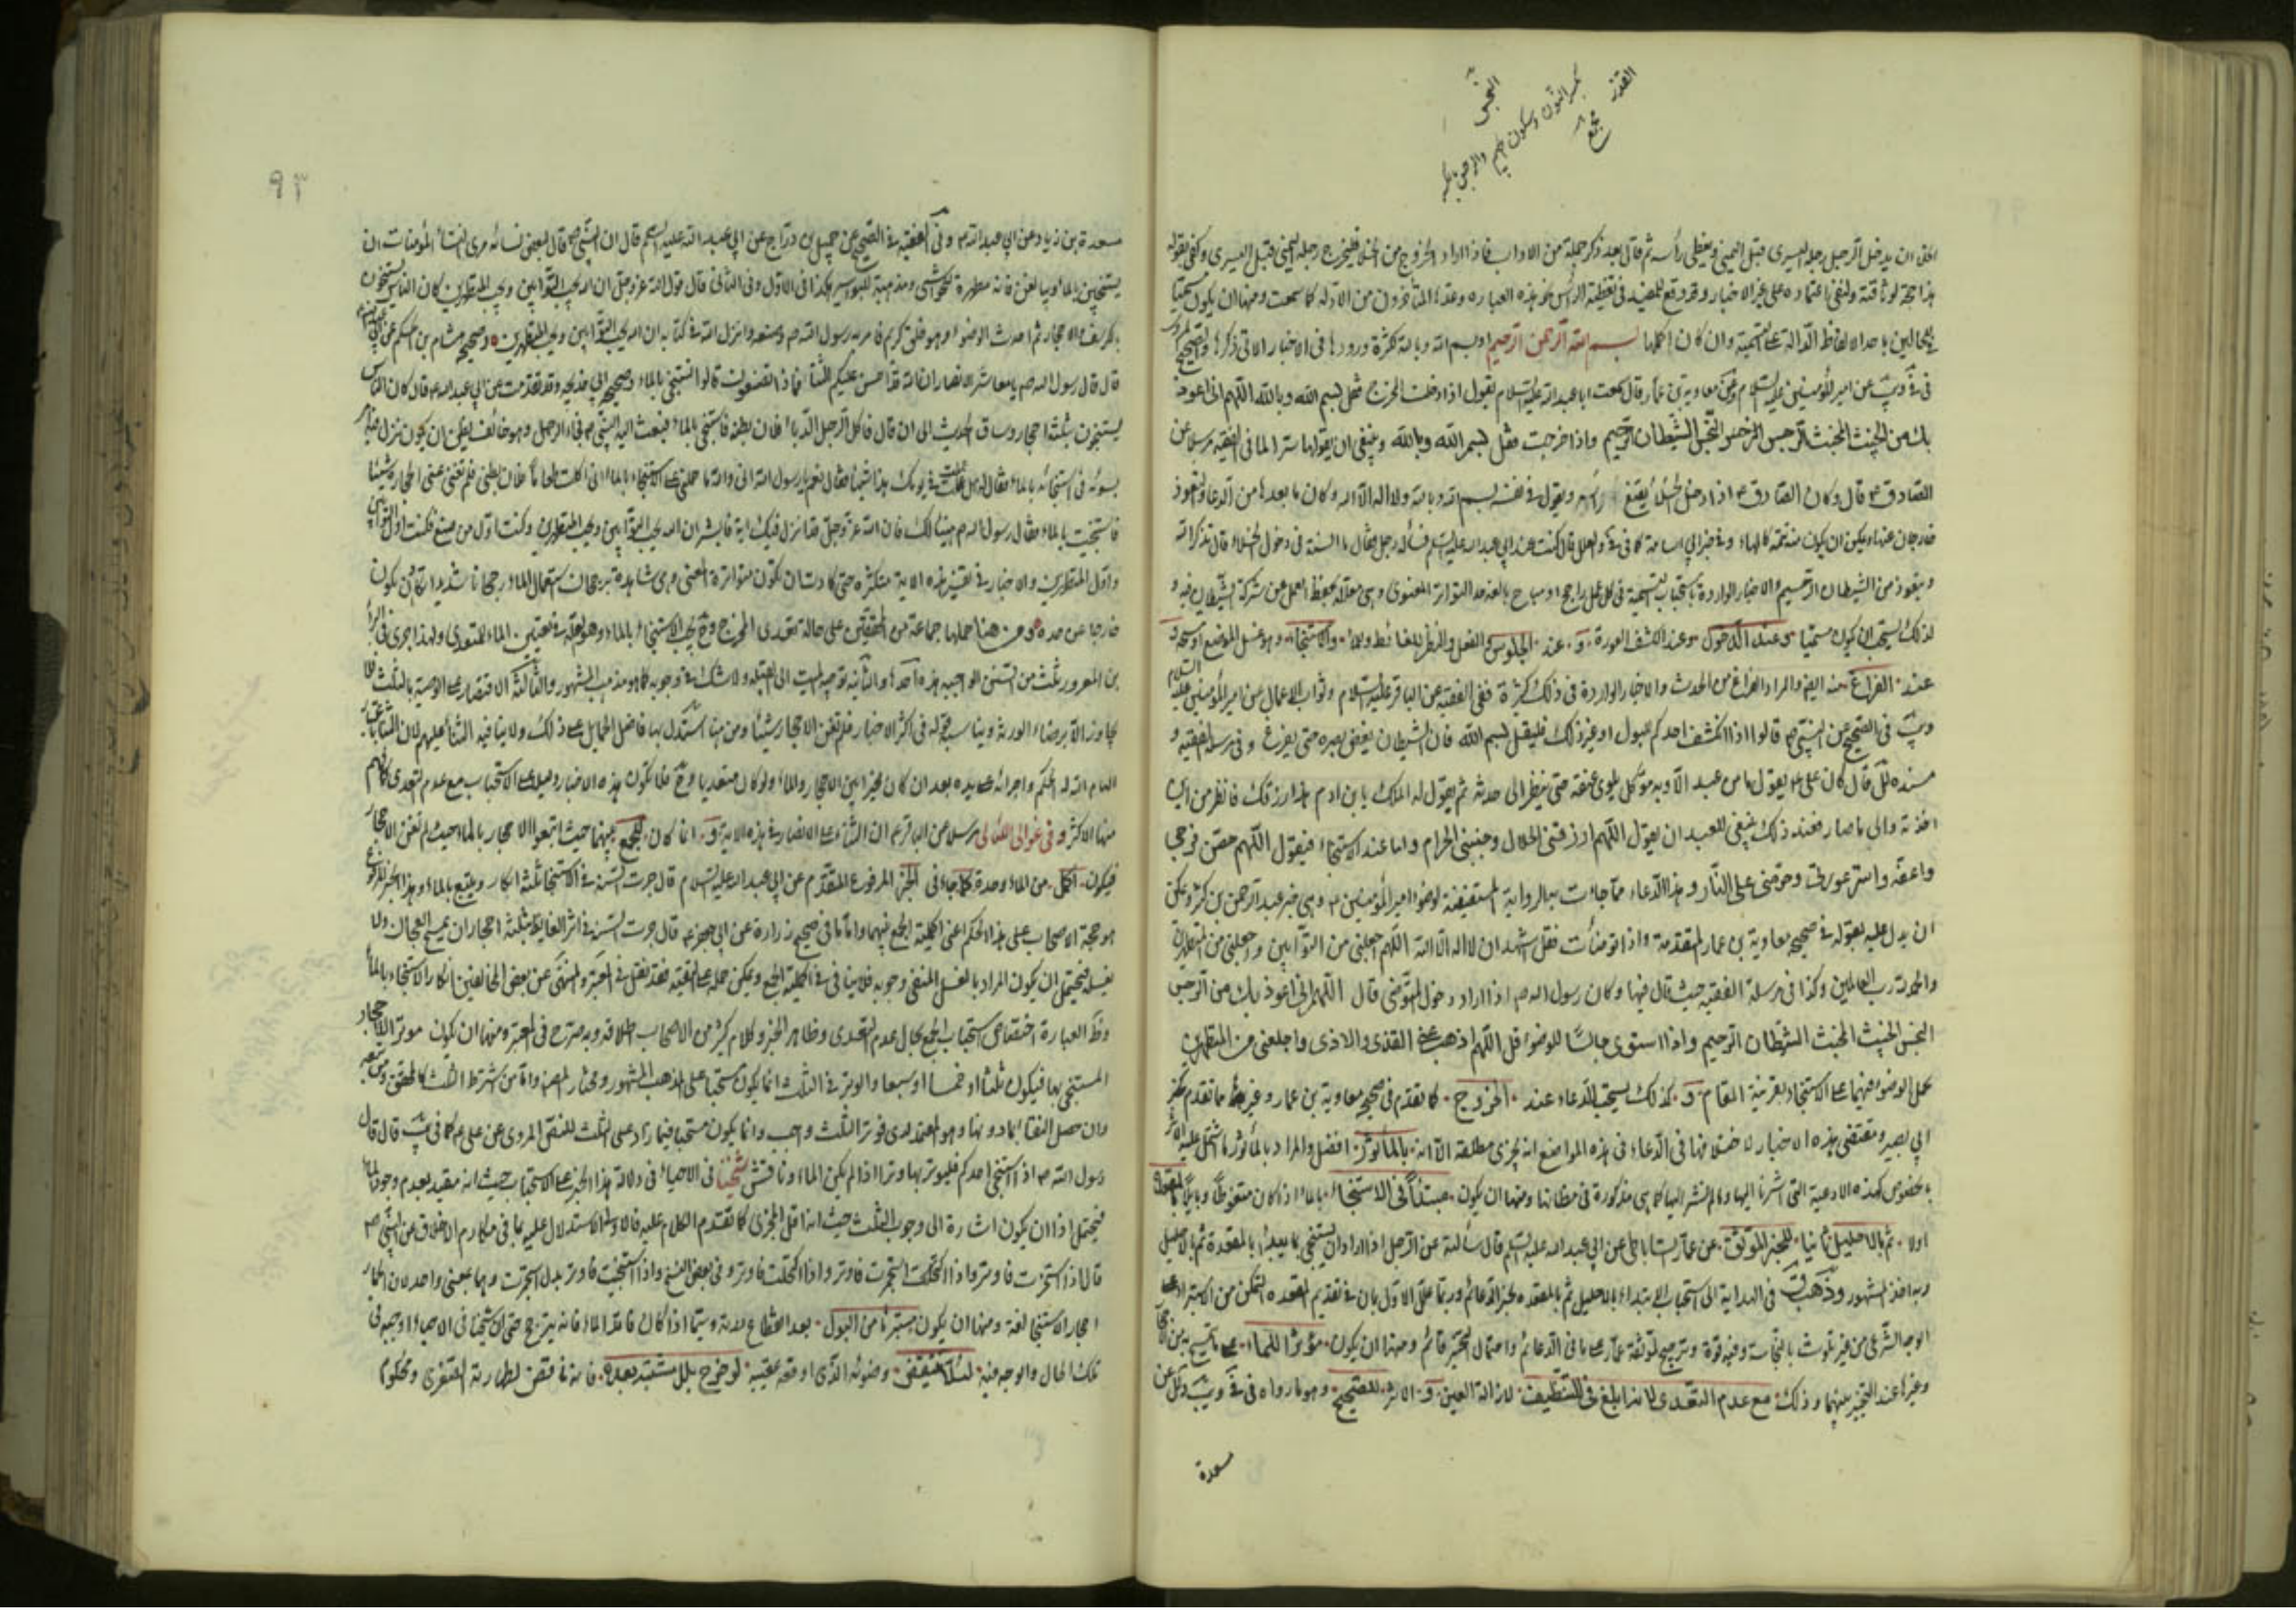 النجس
بكسر النون وسكون الجيم والرجس بالكسر
القذر
مجمع
ان يدخل الرجل رجله اليسرى قبل اليمنى ويغطى رأسه ثم قال بعد ذكر جملة من الاداب فاذا اراد الخروج من الخلا فليخرج رجله اليمنى قبل اليسرى وكفى بقوله
هذا حجة لوثاقته ولنفى اعتماده على غير الاخبار وقد وقع للمفيد فى تغطية الرأس نحو هذه العبارة وعند المتأخرون من الادلة كما سمعت ومنها ان يكون مسميا
باحد الالفاظ الدالة على التسمية وان كان اكملها بسم الله الرحمن الرحيم او بسم الله وبالله لكثرة ورودها فى الاخبار الاتى ذكرها
عن امير المؤمنين عليه السلام وعن معاوية بن عمار قال سمعت ابا عبد الله عليه السلام يقول اذا دخلت المخرج فقل بسم الله وبالله اللهم انى اعوذ
بك من الخبيث المخبث الرجس النجس الشيطان الرجيم واذا خرجت فقل بسم الله وبالله وينبغى ان يقولها سرا لما فى الفقيه مرسلا عن
الصادق ع قال وكان الصادق ع اذا دخل الخلا يقنع رأسه ويقول فى نفسه بسم الله وبالله ولا اله الا الله وكان ما بعدها من الدعاء والتعوذ
خارجان عنها ويمكن ان يكون منه تتمة لها وفى خبر ابى اسامة كما فى والعلل قال كنت عند ابى عبد الله عليه السلم فسأله رجل فقال ما السنة فى دخول الخلاء قال تذكر الله
وتتعوذ من الشيطان الرجيم والاخبار الواردة باستحباب التسمية فى كل عمل راجح او مباح بالغة حد التواتر المعنوى وهى معللة بحفظ العمل من شركة الشيطان فيه و
لذلك يستحب ان يكون مسميا وعند الدخول وعند الكشف العورة و عند الجلوس والفعل والنظر للغائط والاستنجاء وهو غسل الموضع او مسحه و
عند الفراغ منه اليهم والمراد الفراغ من الحدث والاخبار الواردة فى ذلك كثيرة ففى الفقيه عن الباقر عليه السلام وثواب الاعمال عن امير المؤمنين عليه السلام
فى الصحيح عن النبى ص قالوا اذا انكشف احدكم لبول او غير ذلك فليقل بسم الله فان الشيطان يغض بصره حتى يفرغ وفى مرسلة الفقيه و
مسندة قال كان على ع يقول ما من عبد الا وبه موكل يلوى عنقه حتى ينظر الى حدثه ثم يقول له الملك يا بن ادم هذا رزقك فانظر من اين
اخذته والى ما صار فعند ذلك ينبغى للعبد ان يقول اللهم ارزقنى الحلال وجنبنى الحرام واما عند الاستنجاء فيقول اللهم حصن فرجى
واعفه واستر عورتى وحرمنى على النار وهذا الدعاء مما جاءت به الرواية المستفيضة لوضوء امير المؤمنين ع وهى خبر عبد الرحمن بن كثير ويمكن
ان يدل عليه بقوله فى صحيحه معاوية بن عمار المتقدمة واذا توضأت فقل اشهد ان لا اله الا الله اللهم اجعلنى من التوابين واجعلنى من المتطهرين
والحمد لله رب العالمين وكذا فى مرسلة الفقيه حيث قال فيها وكان رسول الله ص اذا اراد دخول المتوضى قال اللهم انى اعوذ بك من الرجس
النجس الخبيث المخبث الشيطان الرجيم واذا استوى جالسا للوضوء قال اللهم اذهب عنى القذى والاذى واجعلنى من المتطهرين
بحمل الوضوء فيهما على الاستنجاء بقرينة المقام و كذلك يستحب الدعاء عند الخروج كما تقدم فى صحيحه معاوية بن عمار وغيرها مما تقدم كخبر
ابى بصير ومقتضى هذه الاخبار لاختلافها فى الدعاء فى هذه المواضع انه يجزى مطلقه الا انه بالمأثور افضل والمراد بالمأثور ما اشتمل عليه
بخصوص كهذه الادعية التى اشرنا اليها وما لم نشر اليها كما هى مذكورة فى مظانها ومنها ان يكون مبتدأ فى الاستنجاء بالماء اذا كان متغوطا وبايلا بالمقعدة
اولا ثم بالاحليل ثانيا للخبر الموثق عن عمار الساباطى عن ابى عبد الله عليه السلم قال سألته عن الرجل اذا اراد ان يستنجى بما يبدأ بالمقعدة ثم بالاحليل
وبه اخذ المشهور وذهب فى البداية الى استحباب الابتداء بالاحليل ثم بالمقعدة لخبر الدعائم وربما علل الاول بان فى تقديم المقعدة التمكن من الاستبراء على
الوجه الشرعى من غير تلوث بالنجاسة وفيه قوة وترجيح لموثقة عمار على ما فى الدعائم واحتمال التخيير قائم ومنها ان يكون مؤثرا للماء
وغيرها عند التخيير بينهما وذلك مع عدم التعدى لانه ابلغ فى التنظيف لازالة العين و الاثر للصحيح وهو ما رواه فى
مسعدة
٩٣
مسعدة بن زياد عن ابى عبد الله ع وفى الفقيه فى الصحيح عن جميل بن دراج عن ابى عبد الله عليه السلم قال ان النبى ص قال لبعض نسائه مرى النساء المؤمنات ان
يستنجين بالماء ويبالغن فانه مطهرة للحواشى ومذهبة للبواسير وكذا فى الاول وفى الثانى قال قول الله عز وجل ان الله يحب التوابين ويحب المتطهرين كان الناس يستنجون
بالكرسف والاحجار ثم احدث الوضوء وهو خلق كريم فامر به رسول الله ص وصنعه وانزل الله فى كتابه ان الله يحب التوابين ويحب المتطهرين وصحيحه هشام بن الحكم عن ابى عبد الله
قال قال رسول الله ص يا معاشر الانصار ان الله قد احسن عليكم الثناء فماذا تصنعون قالوا نستنجى بالماء وصحيحه ابى خديجه وقد تقدمت عن ابى عبد الله ع قال كان الناس
يستنجون بثلثة احجار وساق الحديث الى ان قال فاكل الرجل الدبا فلان بطنه فاستنجى بالماء فبعث اليه النبى ص فجاء الرجل وهو خائف يظن ان يكون نزل فيه امر
يسوئه فى استنجائه بالماء فقال له هل عملت فى يومك هذا شيئا فقال نعم يا رسول الله انى والله ما حملنى على الاستنجاء بالماء الا انى اكلت طعاما فلان بطنى فلم تغن عنى الحجارة شيئا
فاستنجيت بالماء فقال رسول الله ص هنيئا لك فان الله عز وجل قد انزل فيك اية فابشر ان الله يحب التوابين ويحب المتطهرين وكنت اول من صنع فكنت اول التوابين
واول المتطهرين والاخبار فى تفسير هذه الاية متكثرة حتى كادت ان تكون متواترة المعنى وهى شاهدة برجحان استعمال الماء رجحانا شديدا
خارجا عن حده ومن هنا حملها جماعة من المحققين على حالة تعدى المخرج وح يجب الاستنجاء بالماء وهو العلة فى تعيين الماء للتعدى ولهذا جرى فى البراء
بن المعرور ثلث من السنن الواجبة هذه احدها والثانية توجيه الميت الى القبلة ولا شك فى وجوبه كما هو مذهب المشهور والثالثة الاقتصار على الوصية بالثلث
تجاوز الا برضاء الورثة ويناسب قوله فى اكثر الاخبار فلم تغن الاحجار شيئا ومن هنا استدل بها فاضل على ذلك ولا ينافيه الثناء عليهم لان الثناء باعتبار
منها الاكثر وفى غوالى اللئالى مرسلا عن الباقر ع ان الثناء على الانصار فى هذه الاية و انما كان للجمع بينهما حيث اتبعوا الاحجار بالماء حيث لم تغن الاحجار
فيكون اكمل من الماء وحده كما جاء فى الخبر المرفوع المتقدم عن ابى عبد الله عليه السلام قال جرت السنة فى الاستنجاء بثلثة ابكار ويتبع بالماء وهذا الخبر المرفوع
هو حجة الاصحاب على هذا الحكم اعنى اكملية الجمع بينهما واما ما فى صحيح زرارة عن ابى جعفر ع قال جرت السنة فى اثر الغايط بثلثة احجار ان يمسح العجان ولا
يغسله فيحتمل ان يكون المراد بالغسل المنفى وجوبه فلا ينافى اكملية الجمع ويمكن حمله على التقية فقد نقل فى المعتبر والمنتهى عن بعض المخالفين انكار الاستنجاء بالماء
وظ العبارة اختصاص استحباب الجمع بحال عدم التعدى وظاهر الخبر وكلام كثير من الاصحاب اطلاقه وبه صرح فى المعتبر ومنها ان يكون موترا للاحجار
المستنجى بها فيكون ثلثا او خمسا او سبعا والوتر فى الثلث انما يكون مستحبا على المذهب المشهور ومختار المصنف واما من شرط الثلث كالمحقق ومن تبعه
وان حصل النقا بما دونها وهو المعتمد لدى فوتر الثلث واجب وانما يكون مستحبا فيما زاد على الثلث للنص المروى عن على ع كما فى قال قال
رسول الله ص اذا استنجى احدكم فليوتر بها وترا اذا لم يكن الماء وناقش شيخنا فى الاحياء فى دلالة هذا الخبر على الاستحباب حيث انه مقيد بعدم وجود الماء
فيحتمل اذا ان يكون اشارة الى وجوب الثلث حيث انه اقل المجزى كما تقدم الكلام عليه فالاولى الاستدلال عليه بما فى مكارم الاخلاق عن النبى ص
قال اذا استنجيت فاوتر واذا اكتحلت استجمرت فاوتر واذا اكتحلت فاوتر وفى بعض النسخ واذا استنجيت فاوتر بدل استجمرت وهما بمعنى واحد لان الجمار
احجار الاستنجاء لغة ومنها ان يكون مستبرئا من البول بعد انقطاع لدنه وسيما اذا كان فاقد الماء فانه يترجح حتى ان شيخنا فى الاحياء اوجبه فى
تلك الحال والوجه فيه لئلا ينتقض وضوئه الذى اوقعه عقيبه لو خرج بلل مشتبه بعده فانه ناقض لطهارته الصغرى ومحكوم